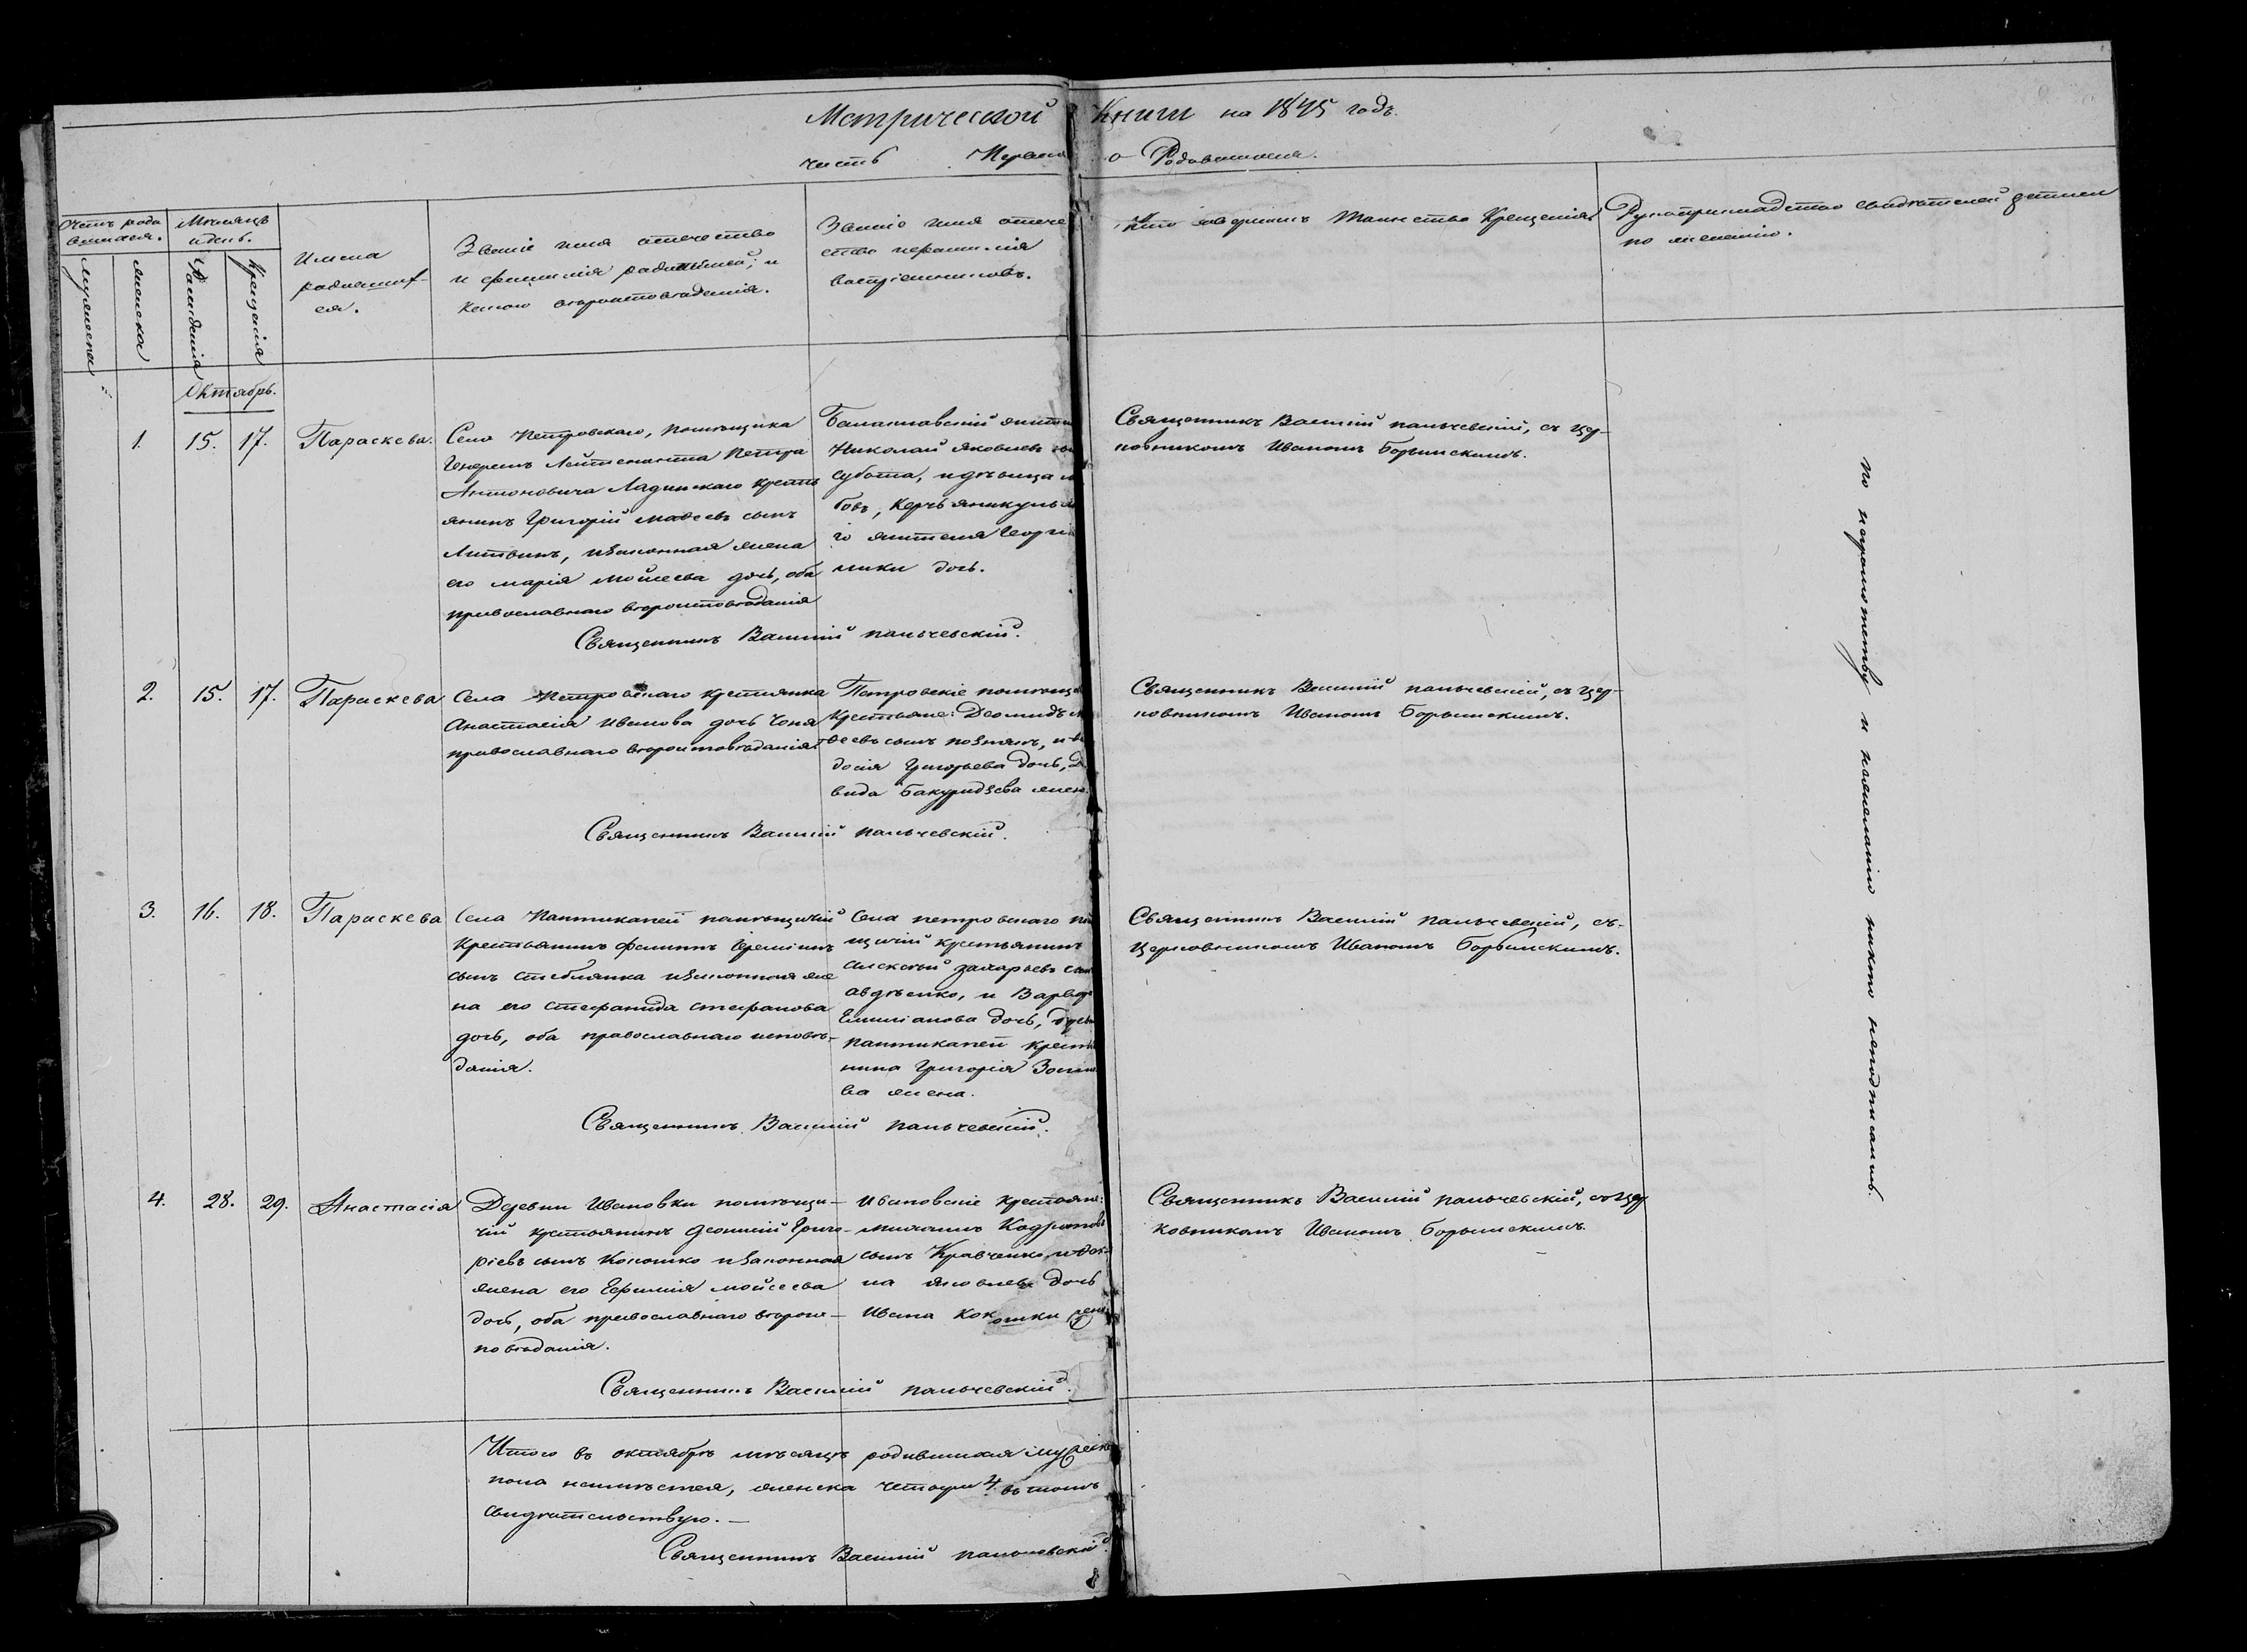 Метрической Книги на 1845 годъ.
часть Первая о Родившихся.
Счетъ роди
вшихся.
Мѣсяцъ
и день.
мужеска
женска
Рожденія
Крещенія
Имена
родившиx-
ся.
Званіе имя отечество
и фамилія родителей, и
какого вѣроисповѣданія.
Званіе имя отече
ство и фамилія
воспріемниковъ.
Кто совершилъ Таинство Крещенія
Рукоприкладство свидѣтелей записи
по желанію.
Октябрь.
1. 15. 17. Параскева.
Села Петровскаго, помѣщика
Генералъ Лейтенанта Петра
Антоновича Ладинскаго крестъ
янинъ Григорій Мавеевъ сынъ
Литвинъ, изаконная жена
его марія Мойсеева дочь, оба
православнаго вѣроисповѣданія
Балаклавскій жител
Николай Яковлевъ сы
субота, и дѣвица
бовь, Керчь яникуль
го жителя Георгі
мики дочь.
Священникъ Василій пальчевскій, съ цер-
ковникомъ Иваномъ Борчинскимъ.
Священникъ Василій пальчевскій.
2. 15. 17. Параскева
Села Петровскаго крестьянка
Анастасія иванова дочь Чоня
православнаго вѣроисповѣданія
Петровскіе помѣщи
Крестьяне: Деомидъ
феевъ сынъ познякъ, и
досія Григорьева дочь, Да
вида Бакуридзева жен.
Священникъ Василій пальчевскій, съ цер-
ковникомъ Иваномъ Борчинскимъ.
Священникъ Василій пальчевскій.
3. 16. 18. Параскева
Села Пантикапей помѣщичій
Крестьянинъ Филиппъ Ереміинъ
сынъ стеблянка изаконная же
на его Стефанида стефанова
дочь, оба православнаго исповѣ-
данія.
Села петровскаго по
щичій крестьянинъ
алексѣй захарьевъ сын
авдѣенко, и Варвар
Емиліанова дочь,
пантикапей крестья
нина Григорія
ва жена.
Священникъ Василій пальчевскій, съ-
Церковникомъ Иваномъ Борчинскимъ.
Священникъ Василій пальчевскій.
4. 28. 29. Анастасія
Деревни Ивановки помѣщи-
чій крестьянинъ Леонтій Григо-
ріевъ сынъ Кокошко изаконная
жена его Ефимія мойсеева
дочь, оба православнаго вѣроис-
повѣданія.
Ивановскіе крестьяне:
михаилъ Кодратовъ
сынъ Кравченко,
на яковлева дочь
Ивана Кокошки жена
Священникъ Василій пальчевскій, съ Цер
ковникомъ Иваномъ Борчинскимъ.
Священникъ Василій пальчевскій.
по неграмотству и нежеланію никто неподписались.
Итого въ октябрѣ мѣсяцѣ родившихся мужеска
пола неимѣется, женска четыре 4. въ томъ
свидѣтельствую.—
Священникъ Василій пальчевскій.